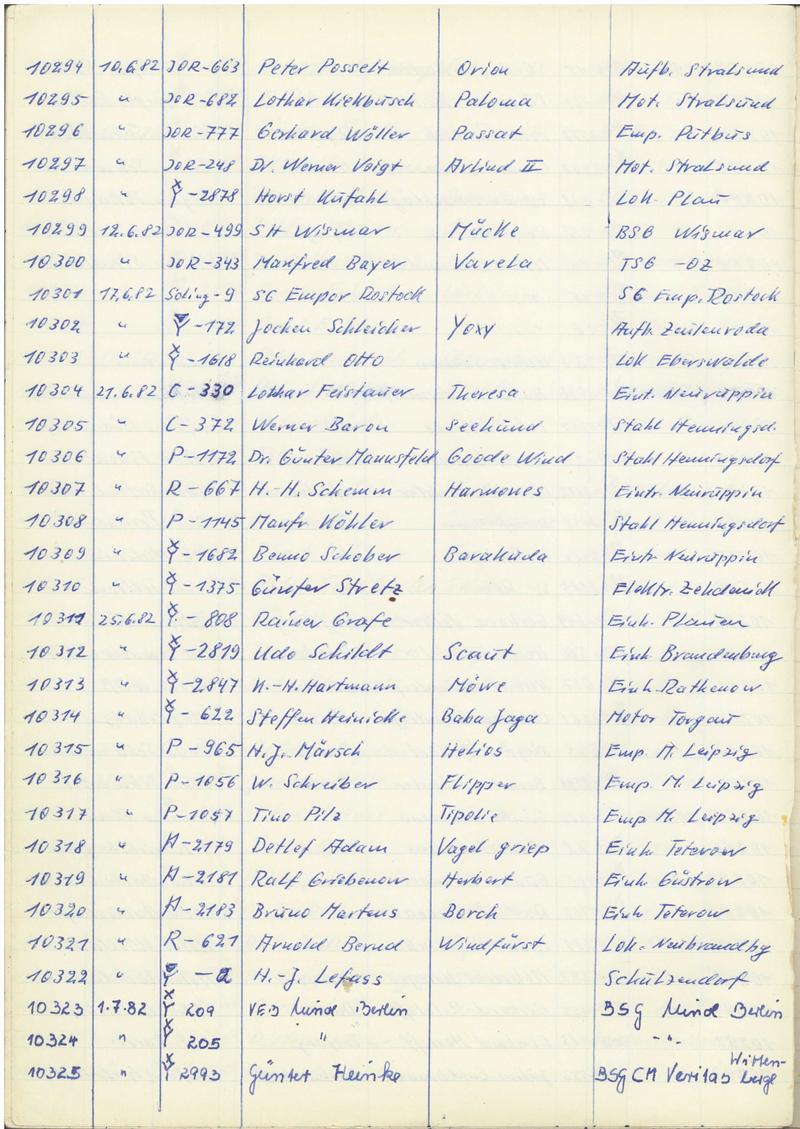 10294 10.6.82 JOR-663 Peter Posselt Orion Aufb. Stralsund
10295 " JOR-682 Lothar Kiekbusch Paloma Mot. Stralsund
10296 " JOR-777 Gerhard Wöller Passat Emp. Putbus
10297 " JOR-248 Dr. Werner Voigt Arlind II Mot. Stralsund
10298 " Y-2878 Horst Kufahl Lok Plau
10299 12.6.82 JOR-499 SH Wismar Mücke BSG Wismar
10300 " JOR-343 Manfred Bayer Varela TSG -OZ
10301 17.6.82 Soling-9 SG Empor Rostock SG Emp. Rostock
10302 " Y-172 Jochen Schleicher Yoxy Aufb. Zeulenroda
10303 " Y-1618 Reinhard Otto Lok Eberswalde
10304 21.6.82 C-330 Lothar Feistauer Theresa Eint. Neuruppin
10305 " C-372 Werner Baron Seehund Stahl Henningsd.
10306 " P-1172 Dr. Günter Mannsfeld Goode Wind Stahl Henningsdorf
10307 " R-667 H.-H. Schemm Harmones Eintr. Neuruppin
10308 " P-1145 Manfr Köhler Stahl Henningsdorf
10309 " Y-1682 Benno Schober Barakuda Eintr Neuruppin
10310 " Y-1375 Günter Stretz Elektr. Zehdenick
10311 25.6.82 Y-808 Rainer Grafe Einh. Plauen
10312 " Y-2819 Udo Schildt Scaut Einh Brandenburg
10313 " Y-2847 K.-H. Hartmann Möwe Einh. Rathenow
10314 " Y-622 Steffen Heinicke Baba Jaga Motor Torgau
10315 " P-965 H.J. Märsch Helios Emp. M. Leipzig
10316 " P-1056 W. Schreiber Flipper Emp. M. Leipzig
10317 " P-1057 Tino Pilz Tipolie Emp M. Leipzig
10318 " H-2179 Detlef Adam Vagel griep Einh Teterow
10319 " H-2181 Ralf Griebenow Herbert Einh Güstrow
10320 " H-2183 Bruno Martens Borch Einh Teterow
10321 " R-621 Arnold Bernd Windfürst Lok. Neubrandbg
10322 " Y-a H.-J. Lefass Schulzendorf
10323 1.7.82 Y 209 VEB Minol Berlin BSG Minol Berlin
10324 " Y 205 " -"-
10325 " Y 2993 Günter Heinke BSG CM Veritas Witten-
berge